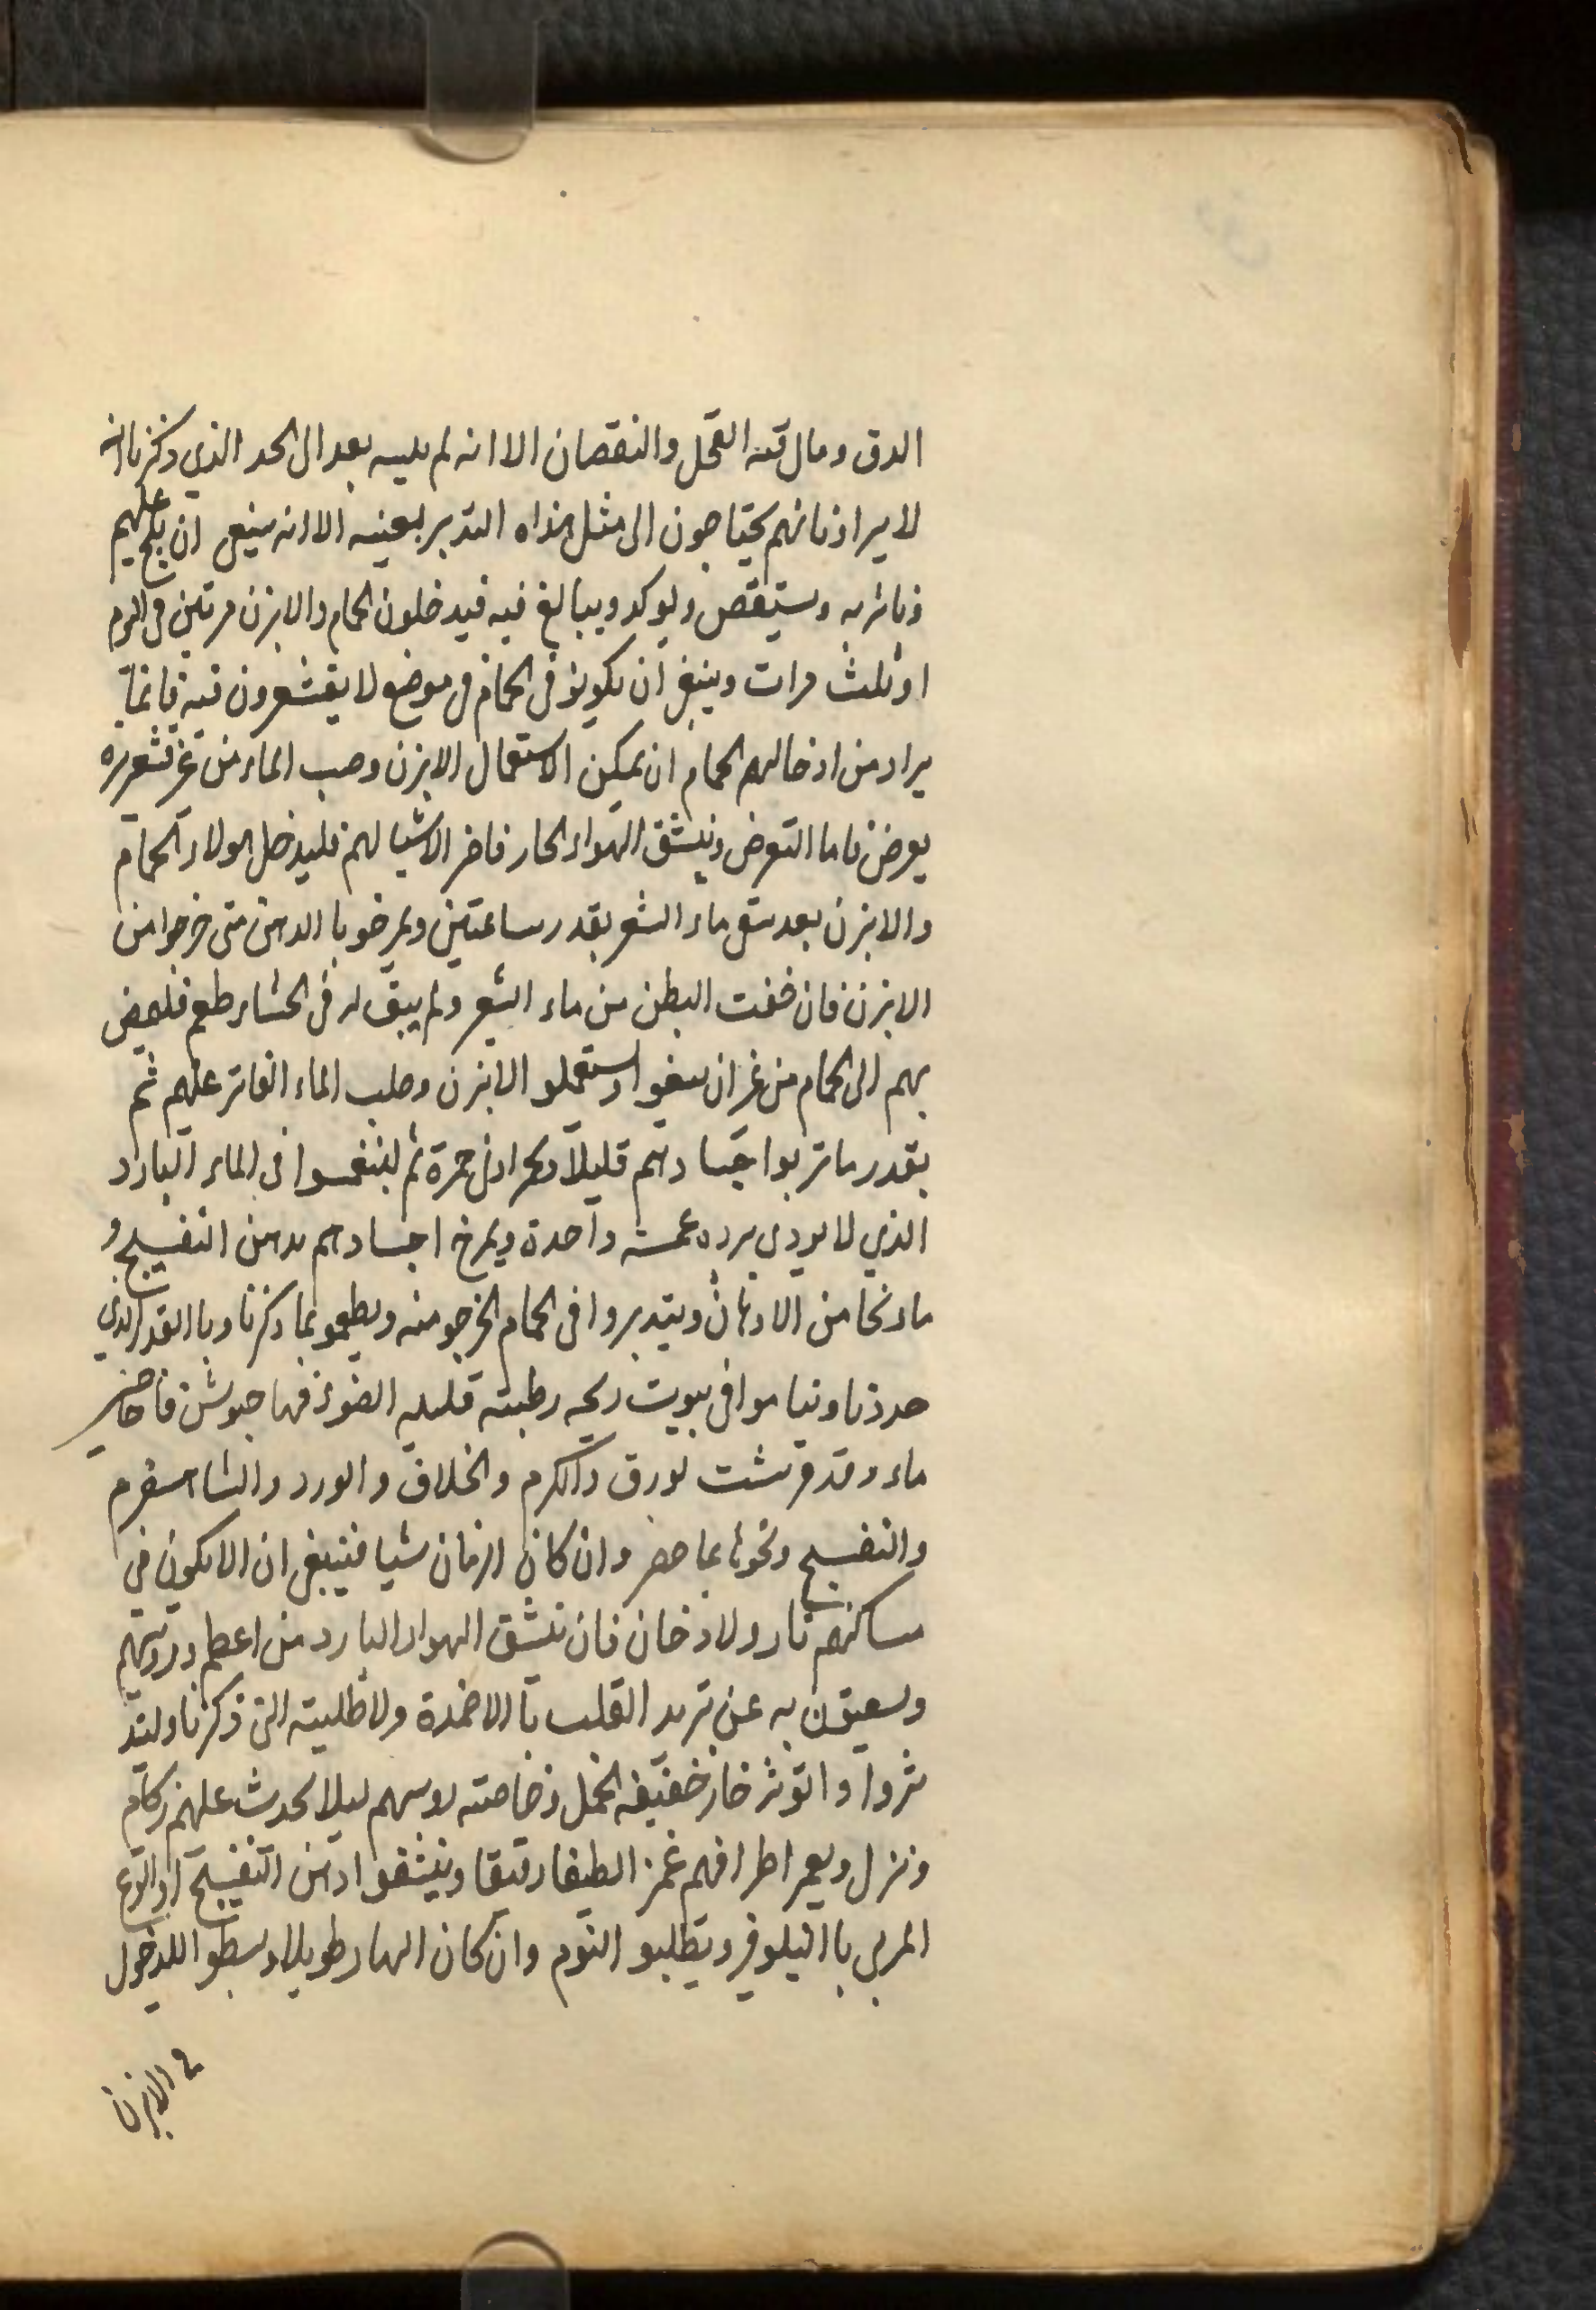 الدق ومال قته القحل والنقصان الا انه لم يليه بعد ال الحد الذي ذكرنا انه
لا يبرا ذنانهم يحتاجون الى مثل هذاه التدبر بعينه الا انه ينبغي ان يلح عليهم
وستقص ويوكد ويبالغ فيه فيدخلون الحمام والابزن مرتين في اليوم
او ثلث مرات وينبغي ان يكونو في الحمام في موضع لا يقشعرون فيه فانما
يراد من ادخالهم الحمام ان يمكن الاستعمال الابزن وصب الماء من غر قشعريره
يعرض فاما التعرض ونيشق الهواء الحار فاضر الاشيا لهم فليدخل هولاء الحمام
والابزن بعد سقى ماء الشعر بقدر ساعتين ويمرخو با الدهن متى خرجوا من
الابزن فان خفت البطن من ماء الشعر ولم يبق له في الحشاء طعم فليمض
بهم الى الحمام من غر ان يسقوا وستعملو الابزن وصلب الماء الفاتر عليهم ثم
بقدر ما تربوا جسادهم قليلا وتحمر ادنى حمرة ثم لينغمسوا في الماء البارد
الذي لا يودى برده غمسه واحدة ويمرخ اجسادهم بدهن النفسج و
ما ونحا من الادهان ويتدبروا في الحمام الخرجو منه ويطعمو بما ذكرنا وبا القدر الذي
حددنا ونيا موا في بيوت ريحه رطبته قليله الضوء فيها جيوش فاضر
ماء وقد فرشت لورق والكرم والخلاف والورد والشاهسفرم
والنفسج ونحوها بما حضر وان كان الزمان شيا فينبغي ان الا يكون في
مساكنهم نار ولا دخان فان نيشق الهواء البارد من اعظم دويتهم
وسعيقون به عن تربد القلب با الاضمدة ولاطليته التي ذكرنا وليتد
ثروا واتوثر خاز خفيفه الخمل وخاصته روسهم ليلا يحدث عليهم زكام
ونزل ويعمر اطرافهم غمز الطيفا رقيقا ونيشقوا دهن النفسج او القرع
المربى با النيلوفر ويطلبو النوم وان كان النهار طويلا وسطوا للدخول
في الابزن